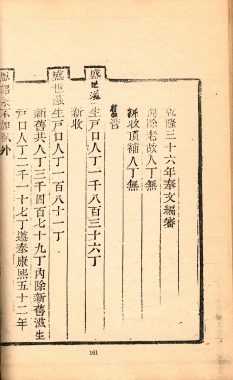 乾隆三十六年奉文編審
開除老故人丁無
新收頂補人丁無
舊管
盛世滋生戶口人丁一千八百三十六丁
新收
盛世滋生戶口人丁一百八十一丁
新舊共人丁三千四百七十九丁內除新舊滋生
戶口人丁二千一十七丁遵奉康熙五十二年
恩詔永不加賦外
161